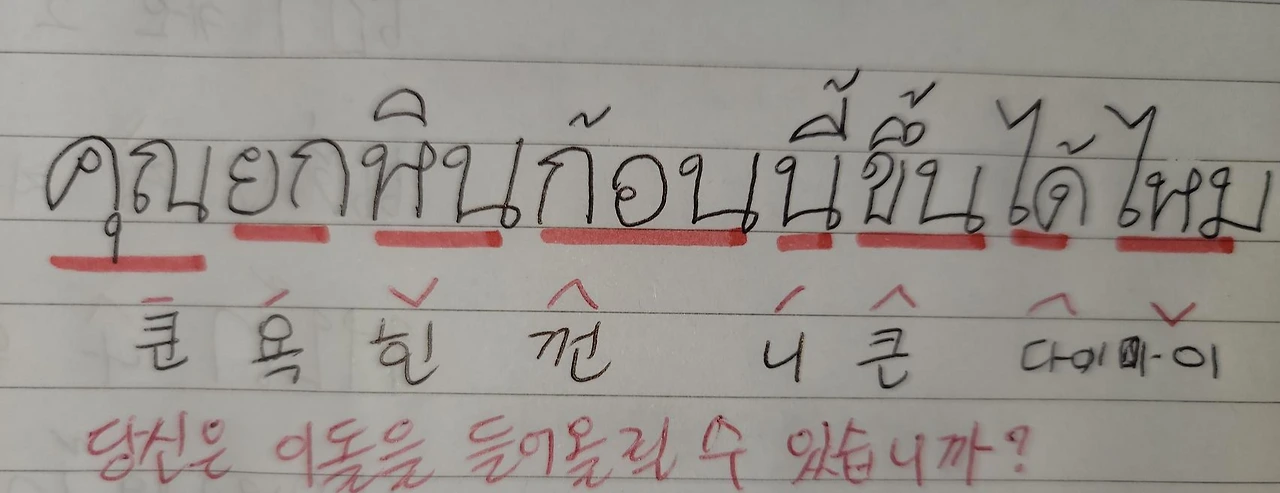 คุณยกหินก้อนนี้ขึ้นได้ไหม
쿤 욕 힌 껀 니 큰 다이 마-이
당신은 이돌을 들어올릴 수 있습니까?